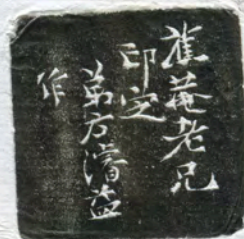 蕉菴老兄
印定
弟方濬益
作